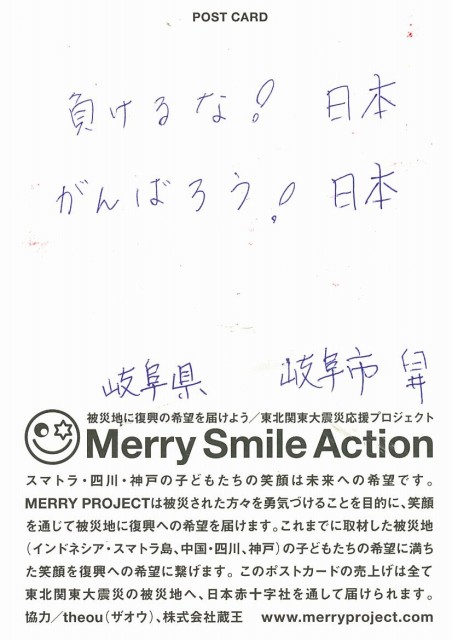 POST CARD
負けるな! 日本
がんばろう! 日本
岐阜県 岐阜市 舁
被災地に復興の希望を届けよう/東北関東大震災応援プロジェクト
Merry Smile Action
スマトラ・四川・神戸の子どもたちの笑顔は未来への希望です。
MERRY PROJECTは被災された方々を勇気づけることを目的に、笑顔
を通じて被災地に復興への希望を届けます。これまでに取材した被災地
(インドネシア・スマトラ島、中国・四川、神戸)の子どもたちの希望に満ち
た笑顔を復興への希望に繋げます。このポストカードの売上げは全て
東北関東大震災の被災地へ、日本赤十字社を通して届けられます。
協力/theou(ザオウ)、株式会社蔵王 www.merryproject.com